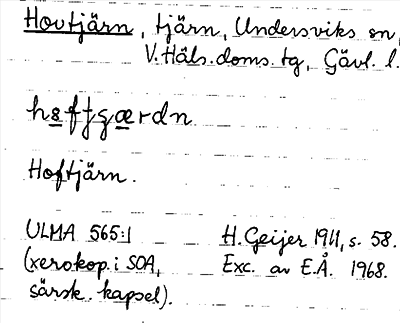 Hovtjärn, tjärn, Undersviks sn,
V. Häls. doms. tg, Gävl. l.
hɵftjærdn
Hoftjärn.
ULMA 565:1 H. Geijer 1911, s. 58.
(xerokop. i SOA, Exc. av E.Å. 1968.
särsk. kapsel).